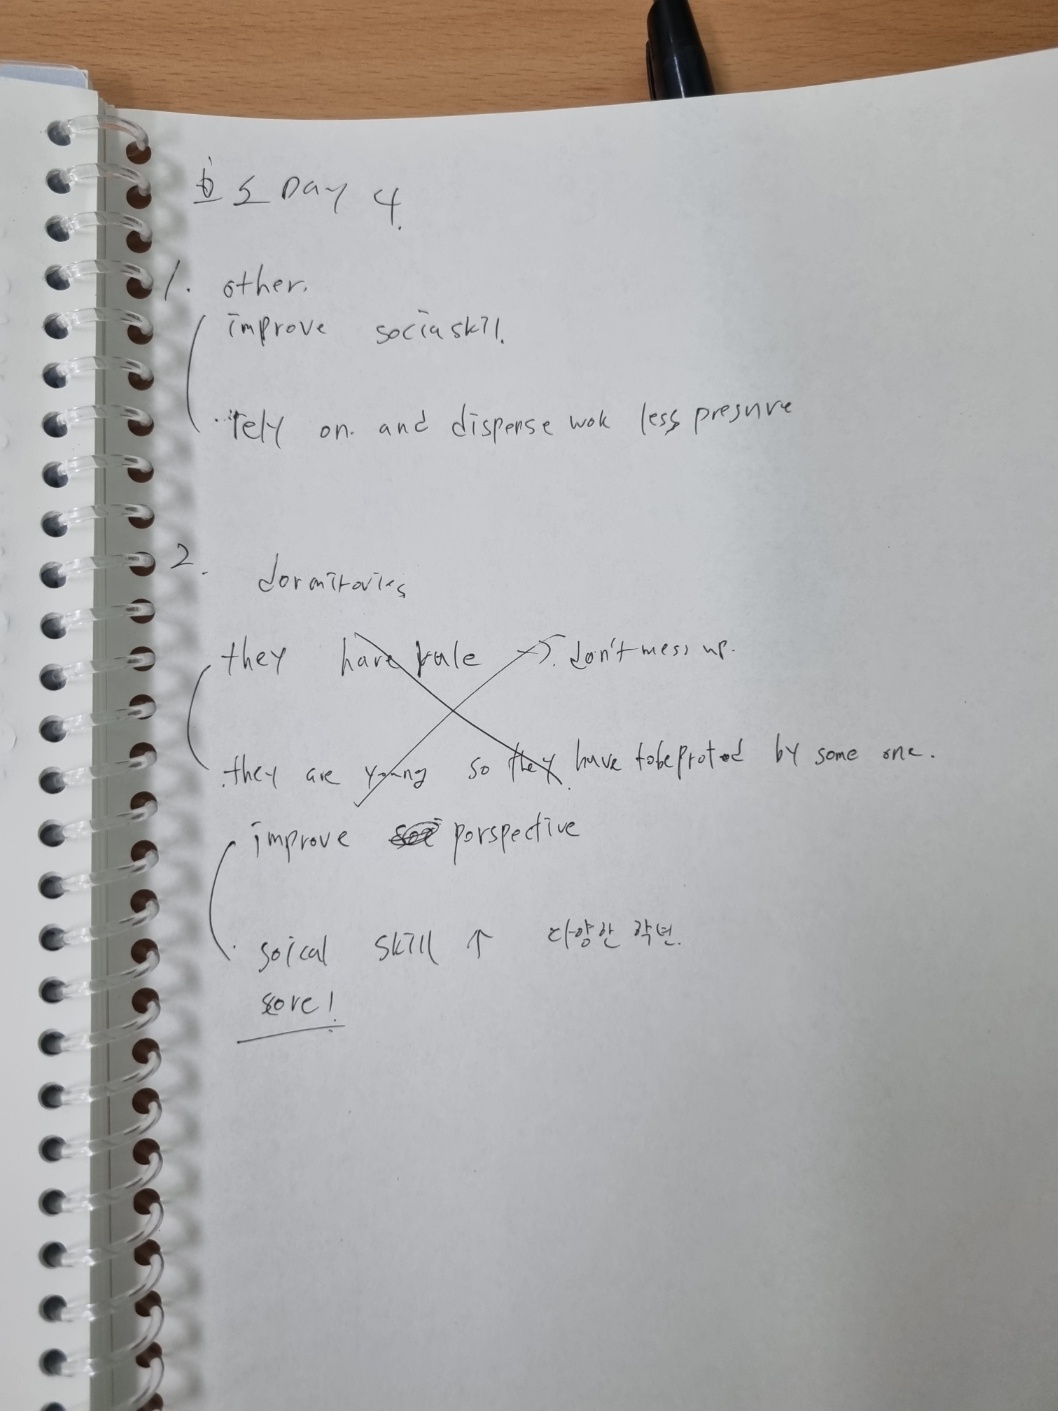 Day 4.
1. other.
improve sociaskil.
rely on. and disperse wok less presure
2. dormitories
they have rule → don't mess up.
they are young so they have tobeproted by some one.
improve porspective
soical skill ↑ 다양한 학년.